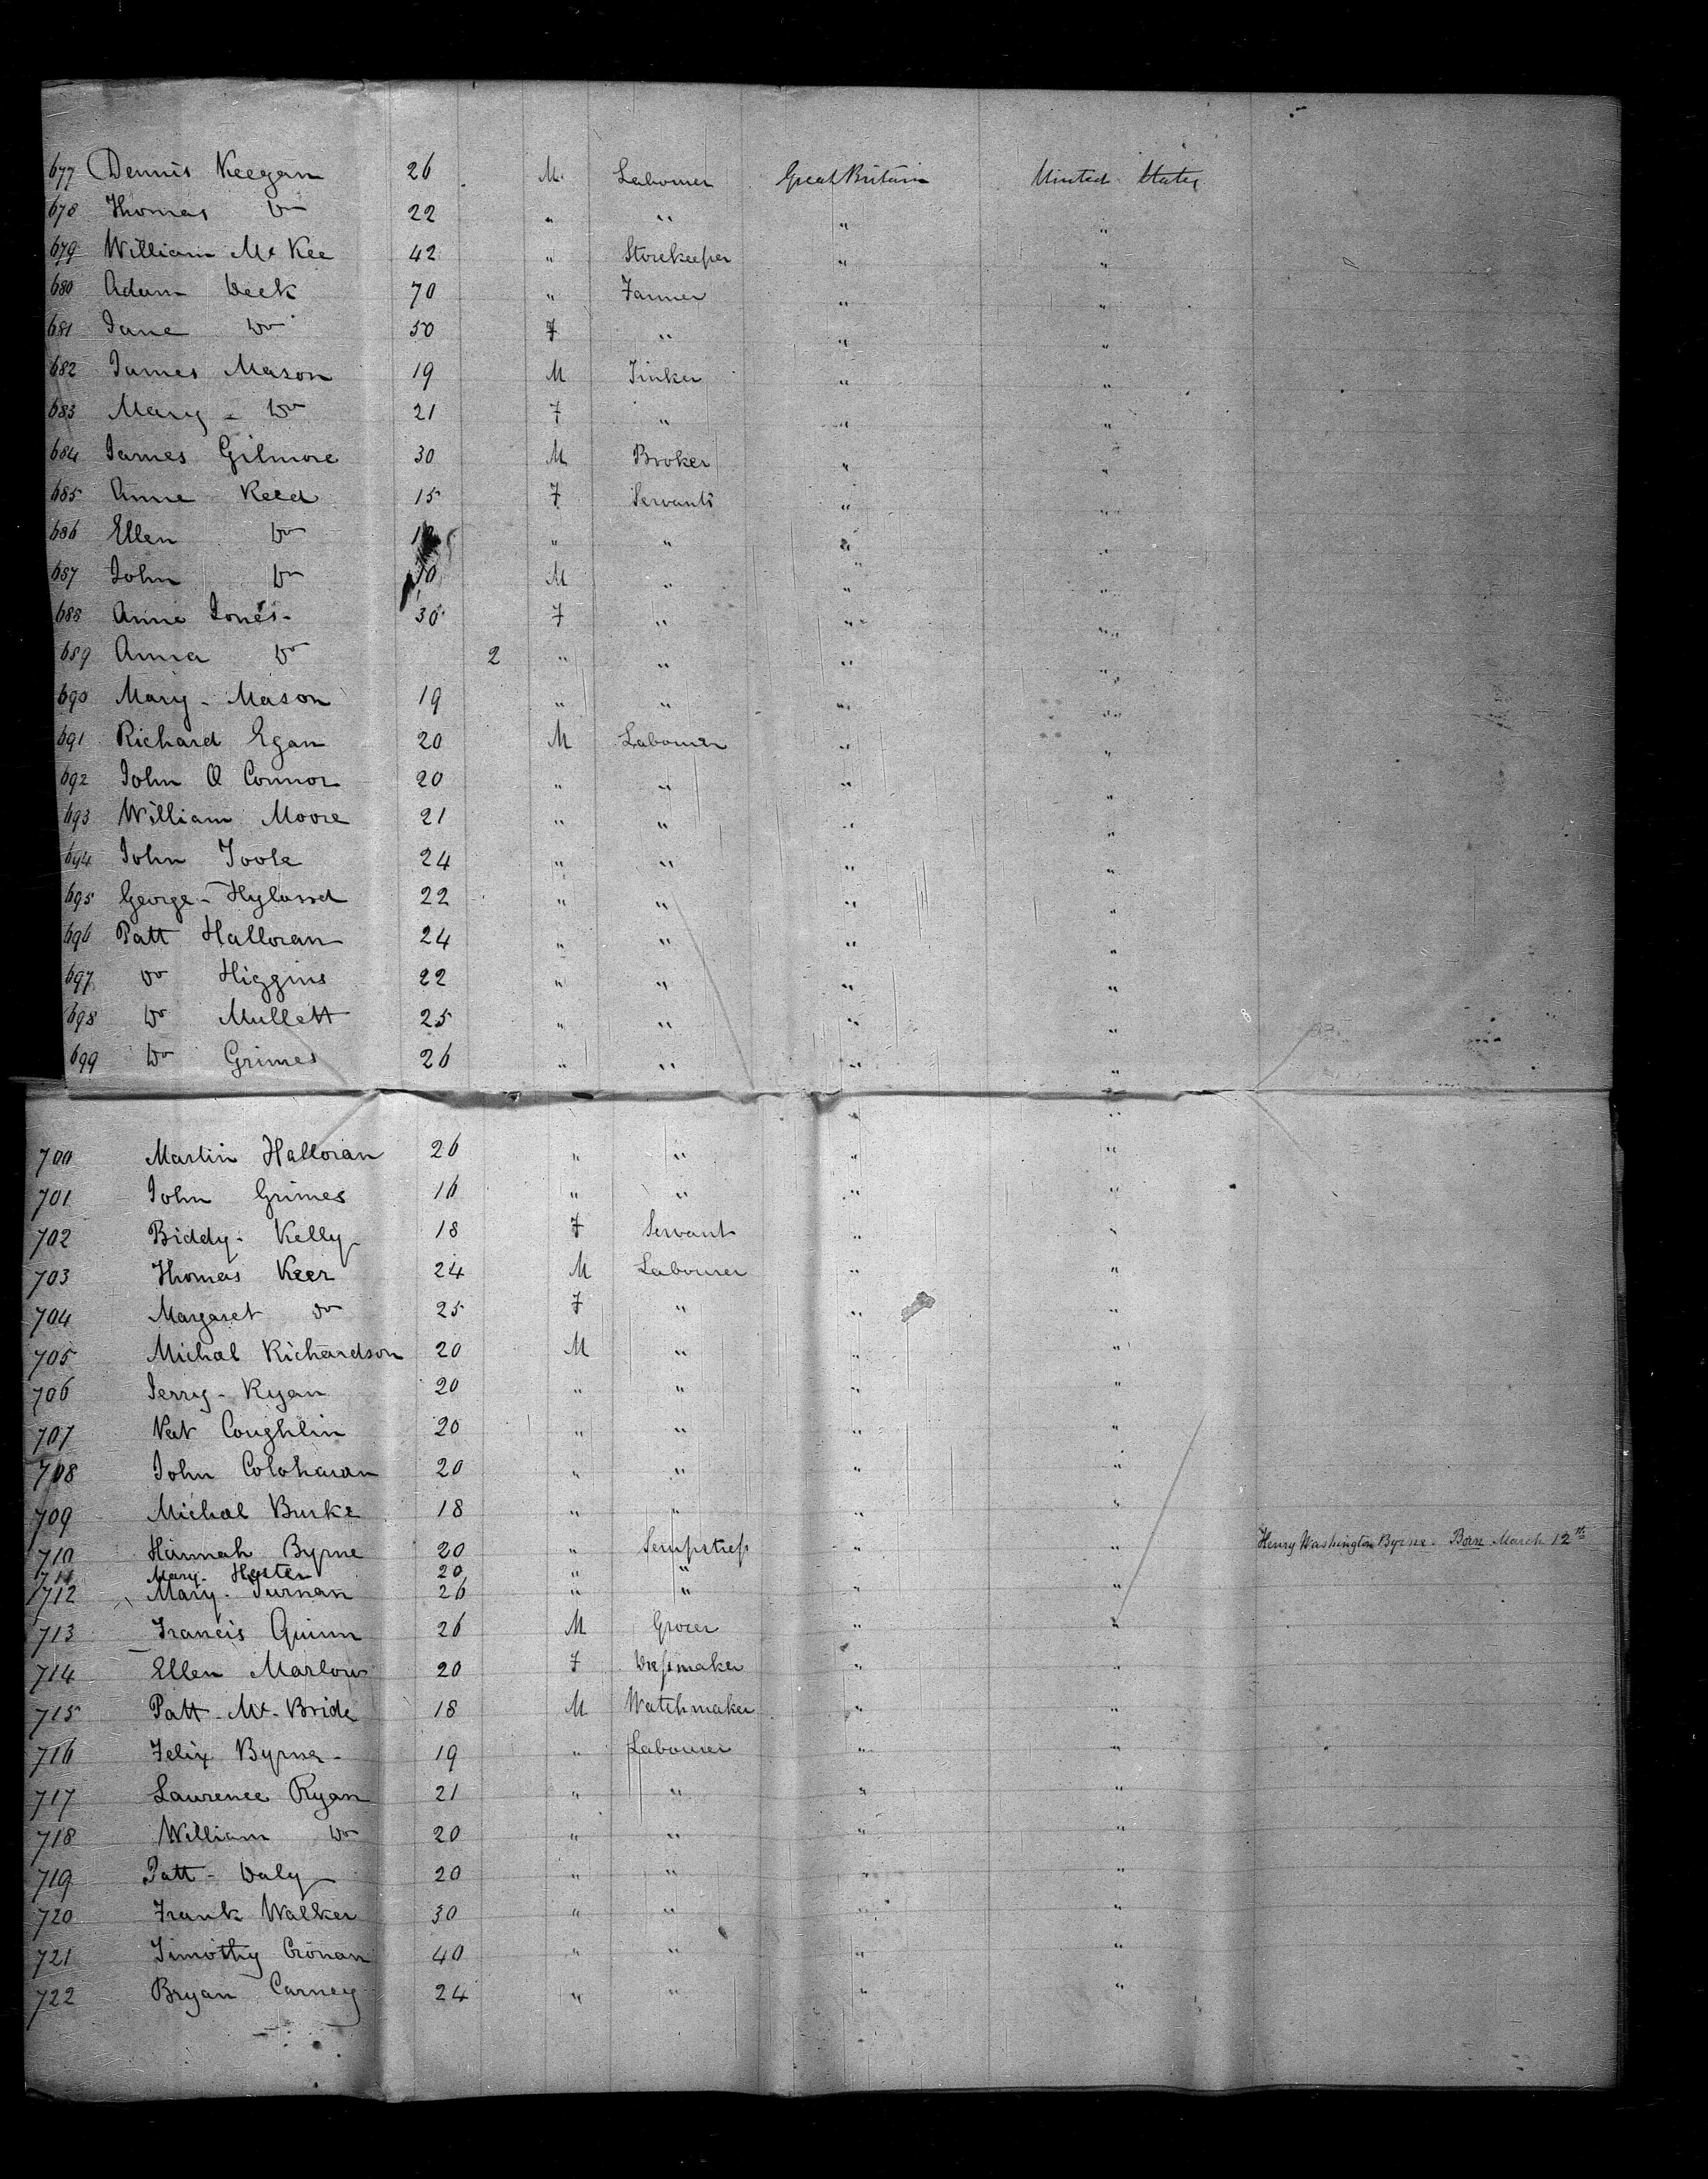 677 Dennis Keegan 26 M. Labourer Great Britain United States
678 Thomas Do 22 " " " "
679 William Mc Kee 42 " Storekeeper " "
680 Adam Deek 70 " Farmer " "
681 Jane Do 50 F " " "
682 James Mason 19 M Tinker " "
683 Mary - Do 21 F " " "
684 James Gilmore 30 M Broker " "
685 Anne Reed 15 F Servants " "
686 Ellen Do " " " "
687 John Do 10 M " " "
688 Anne Jones - 30 F " " "
689 Anna Do 2 " " " "
690 Mary - Mason 19 " " " "
691 Richard Egan 20 M Labourer " "
692 John O Connor 20 " " " "
693 William Moore 21 " " " "
694 John Toole 24 " " " "
695 George - Hyland 22 " " " "
696 Patt Halloran 24 " " " "
697 Do Higgins 22 " " " "
698 Do Mullett 25 " " " "
699 Do Grimes 26 " " " "
" "
700 Martin Halloran 26 " " " "
701 John Grimes 16 " " " "
702 Biddy - Kelly 18 F Servant " "
703 Thomas Keer 24 M Labourer " "
704 Margaret Do 25 F " " "
705 Michal Richardson 20 M " " "
706 Jerry - Ryan 20 " " " "
707 Pat Coughlin 20 " " " "
708 John Coloharan 20 " " " "
709 Michal Burke 18 " " " "
710 Hannah Byrne 20 " Sempstress " " Henry Washington Byrne. Born March 12th
711 Mary - 20 " "
712 Mary - Turnan 26 " " " "
713 Francis Quinn 26 M Grocer " "
714 Ellen Marlow 20 F Dressmaker " "
715 Patt - Mc - Bride 18 M Watchmaker " "
716 Felix Byrne - 19 " Labourer " "
717 Laurence Ryan 21 " " " "
718 William Do 20 " " " "
719 Patt - Daly 20 " " " "
720 Frank Walker 30 " " " "
721 Timothy Cronan 40 " " " "
722 Bryan Carney 24 " " " "